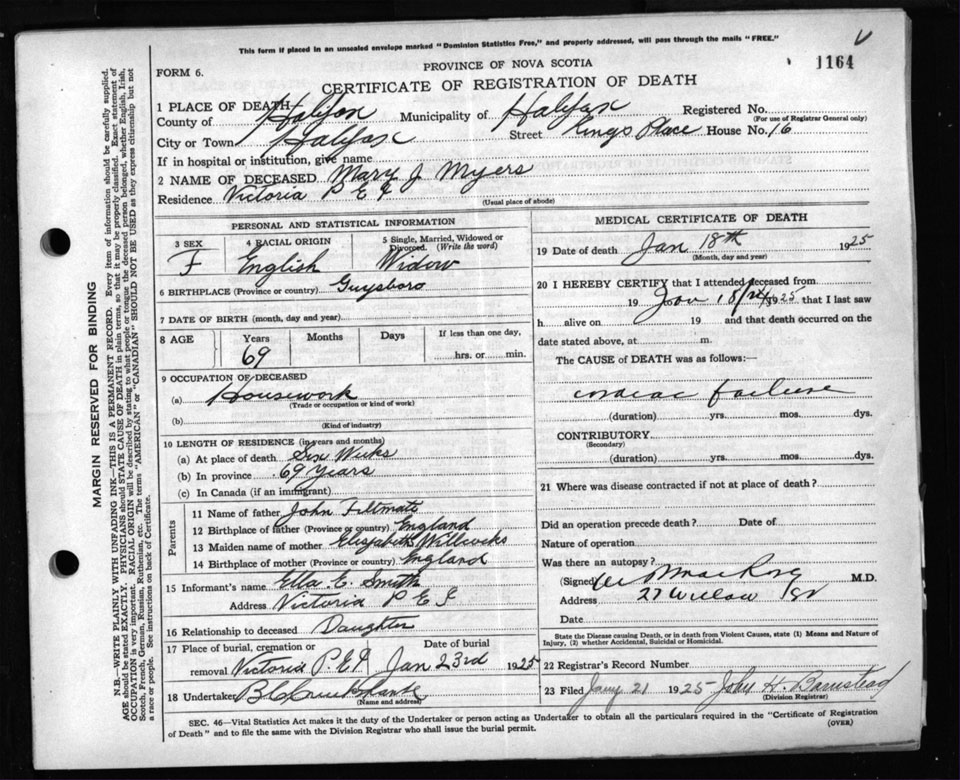 This form if placed in an unsealed envelope marked "Dominion Statistics Free," and properly addressed, will pass through the mails "FREE."
1164
PROVINCE OF NOVA SCOTIA
FORM 6.
CERTIFICATE OF REGISTRATION OF DEATH
1 PLACE OF DEATH
County of Halifax Municipality of Halifax Registered No.
(For use of Registrar General only)
City or Town Halifax Street Kings Place House No. 16
If in hospital or institution, give name
2 NAME OF DECEASED Mary J Myers
Residence Victoria P E I
(Usual place of abode)
PERSONAL AND STATISTICAL INFORMATION
3 SEX 4 RACIAL ORIGIN 5 Single, Married, Widowed or Divorced. (Write the word)
F English Widow
6 BIRTHPLACE (Province or country) Guysboro
7 DATE OF BIRTH (month, day and year)
8 AGE Years Months Days If less than one day,
69 hrs. or min.
9 OCCUPATION OF DECEASED
(a) Housework
(Trade or occupation or kind of work)
(b)
(Kind of industry)
10 LENGTH OF RESIDENCE (in years and months)
(a) At place of death Six Weeks
(b) In province 69 Years
(c) In Canada (if an immigrant)
Parents
11 Name of father John
12 Birthplace of father (Province or country) England
13 Maiden name of mother Elizabeth
14 Birthplace of mother (Province or country) England
15 Informant's name Ella E. Smith
Address Victoria P E I
16 Relationship to deceased Daughter
17 Place of burial, cremation or removal Date of burial
Victoria P.E.I Jan 23rd 1925
18 Undertaker
(Name and address)
MEDICAL CERTIFICATE OF DEATH
19 Date of death Jan 18th 1925
(Month, day and year)
20 I HEREBY CERTIFY that I attended deceased from
19 Jan 18/ 1925 that I last saw
h alive on 19 and that death occurred on the
date stated above, at m.
The CAUSE of DEATH was as follows:—
cardiac failure
(duration) yrs. mos. dys.
CONTRIBUTORY
(Secondary)
(duration) yrs. mos. dys.
21 Where was disease contracted if not at place of death?
Did an operation precede death? Date of
Nature of operation
Was there an autopsy?
(Signed) M.D.
Address 27 Willow
Date
State the Disease causing Death, or in death from Violent Causes, state (1) Means and Nature of
Injury, (2) whether Accidental, Suicidal or Homicidal.
22 Registrar's Record Number
23 Filed Jany 21 1925 John H. Barnstead
(Division Registrar)
SEC. 46—Vital Statistics Act makes it the duty of the Undertaker or person acting as Undertaker to obtain all the particulars required in the "Certificate of Registration
of Death" and to file the same with the Division Registrar who shall issue the burial permit.
(OVER)
MARGIN RESERVED FOR BINDING
N.B.—WRITE PLAINLY WITH UNFADING INK—THIS IS A PERMANENT RECORD. Every item of information should be carefully supplied.
AGE should be stated EXACTLY. PHYSICIANS should STATE CAUSE OF DEATH in plain terms, so that it may be properly classified. Exact statement of
OCCUPATION is very important. RACIAL ORIGIN will be described by stating to what people or tongue the deceased person belonged, whether English, Irish,
Scotch, French, German, Russian, Ruthenian, etc. The terms "AMERICAN" or "CANADIAN" SHOULD NOT BE USED as they express citizenship but not
a race or people. See instructions on back of Certificate.